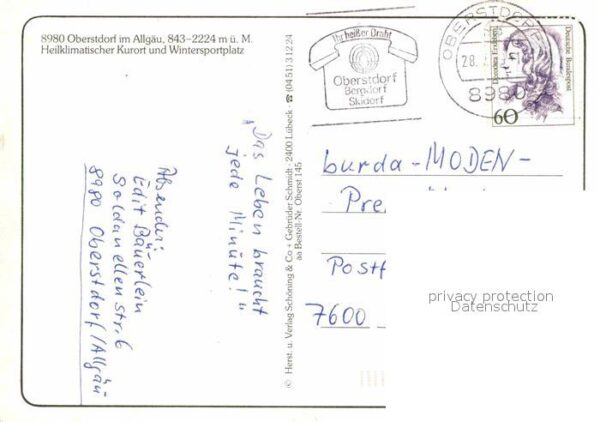 8980 Oberstdorf im Allgäu, 843–2224 m ü. M.
Heilklimatischer Kurort und Wintersportplatz
Ihr heißer Draht
Oberstdorf
Bergdorf
Skidorf
OBERSTDORF
28.
8980
Deutsche Bundespost
60
"Das Leben braucht
jede Minute!"
Absender:
Edit Bäuerlein
Soldanellenstr. 6
8980 Oberstdorf/Allgäu
© Herst. u. Verlag Schöning & Co + Gebrüder Schmidt · 2400 Lübeck · ☎ (04 51) 3 12 24
aa Bestell-Nr. Oberst 145
burda-MODEN-
Pre
Postf
7600
privacy protection
Datenschutz